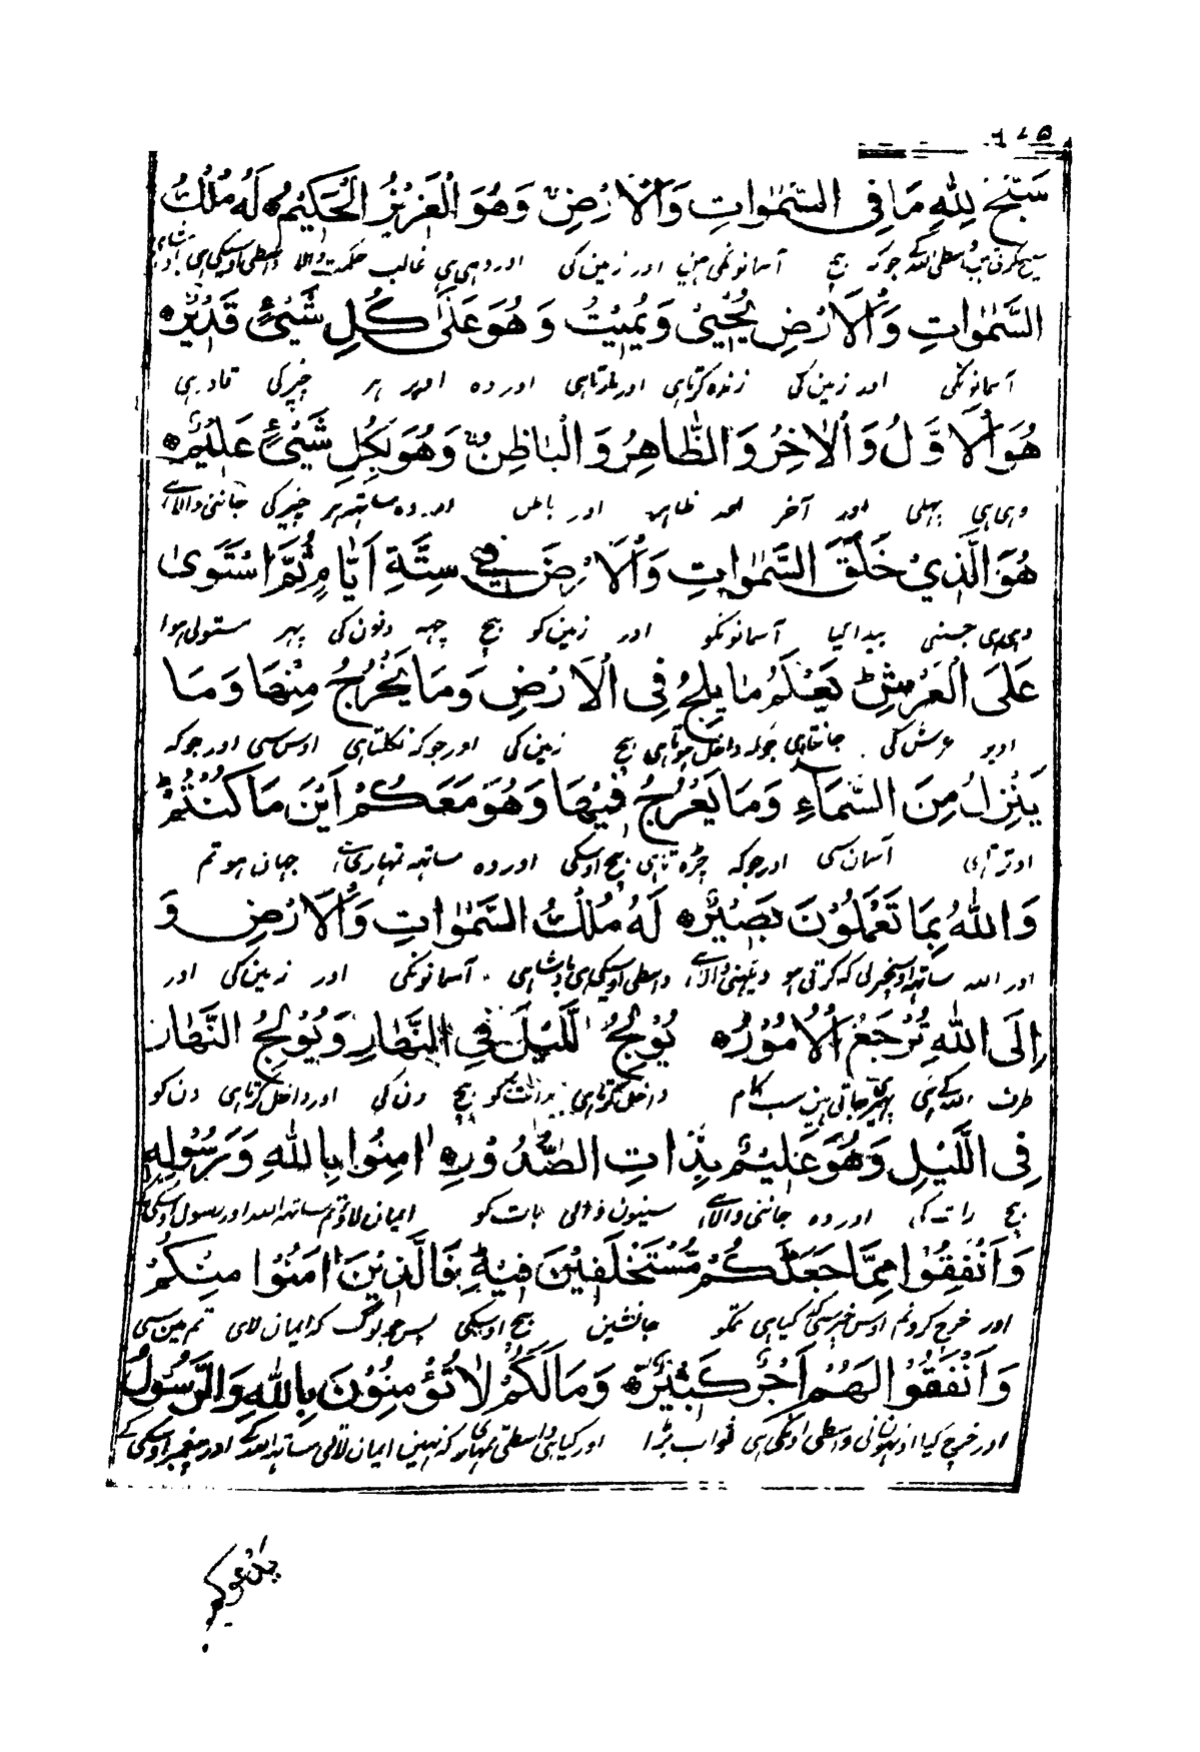 سَبَّحَ لِلّٰهِ مَا فِی السَّمٰوٰتِ وَالْاَرْضِ وَهُوَ الْعَزِیْزُ الْحَکِیْمُ لَهٗ مُلْكُ
تسبیح کرتی ہیں واسطی اللہ کے جو کہ بیچ آسمانونکی ہیں اور زمین کی اور وہی ہی غالب حکمت والا واسطی اوسیکی ہی بادشاہی
السَّمٰوٰتِ وَالْاَرْضِ یُحْیٖ وَیُمِیْتُ وَهُوَ عَلٰی کُلِّ شَیْئٍ قَدِیْرٌ
آسمانونکی اور زمین کی زندہ کرتا ہی اور مارتا ہی اور وہ اوپر ہر چیز کی قادر ہی
هُوَ الْاَوَّلُ وَالْاٰخِرُ وَالظَّاهِرُ وَالْبَاطِنُ وَهُوَ بِکُلِّ شَیْئٍ عَلِیْمٌ
وہی ہی پہلی اور آخر اور ظاہر اور باطن اور وہ ساتھہ ہر چیز کی جاننی والا ہے
هُوَ الَّذِیْ خَلَقَ السَّمٰوٰتِ وَالْاَرْضَ فِیْ سِتَّةِ اَیَّامٍ ثُمَّ اسْتَوٰی
وہی ہی جسنی پیدا کیا آسمانونکو اور زمین کو بیچ چہہ دنون کی پہر مستولی ہوا
عَلَی الْعَرْشِ یَعْلَمُ مَا یَلِجُ فِی الْاَرْضِ وَمَا یَخْرُجُ مِنْهَا وَمَا
اوپر عرش کی جانتا ہی جو کہ داخل ہوتا ہی بیچ زمین کی اور جو کہ نکلتا ہی اوس سی اور جو کہ
یَنْزِلُ مِنَ السَّمَآءِ وَمَا یَعْرُجُ فِیْهَا وَهُوَ مَعَکُمْ اَیْنَ مَا کُنْتُمْ
اوترتا ہی آسمان سی اور جو کہ چڑہتا ہی بیچ اوسکی اور وہ ساتھہ تمہاری ہے جہان ہو تم
وَاللّٰهُ بِمَا تَعْمَلُوْنَ بَصِیْرٌ لَهٗ مُلْكُ السَّمٰوٰتِ وَالْاَرْضِ وَ
اور اللہ ساتھہ اوسچیز کی کہ کرتی ہو دیکھنی والا ہے واسطی اوسیکی ہی بادشاہی آسمانونکی اور زمین کی اور
اِلَی اللّٰهِ تُرْجَعُ الْاُمُوْرُ یُوْلِجُ الَّلیْلَ فِی النَّهَارِ وَیُوْلِجُ النَّهَارَ
طرف اللہ کے ہی پہیری جاتی ہین سب کام داخل کرتا ہی رات کو بیچ دن کی اور داخل کرتا ہی دن کو
فِی الَّلیْلِ وَهُوَ عَلِیْمٌ بِذَاتِ الصُّدُوْرِ اٰمِنُوْا بِاللّٰهِ وَرَسُوْلِهٖ
بیچ رات کی اور وہ جاننی والا ہے سینون والی بات کو ایمان لاؤ تم ساتھہ اللہ اور رسول اوسکی کے
وَاَنْفِقُوْا مِمَّا جَعَلَکُمْ مُّسْتَخْلَفِیْنَ فِیْهِ فَالَّذِیْنَ اٰمَنُوْا مِنْکُمْ
اور خرچ کرو تم اوس چیز سی کہ کیا ہی تمکو جانشین بیچ اوسکی پس جو لوگ کہ ایمان لائی تم مین سی
وَاَنْفَقُوْا لَهُمْ اَجْرٌ کَبِیْرٌ وَمَا لَکُمْ لَا تُؤْمِنُوْنَ بِاللّٰهِ وَالرَّسُوْلُ
اور خرچ کیا اونہونی واسطی اونکی ہی ثواب بڑا اور کیا ہی واسطی تمہاری کہ نہین ایمان لاتی ساتھہ اللہ کے اور پیغمبر اوسکی کے
یدعوکم